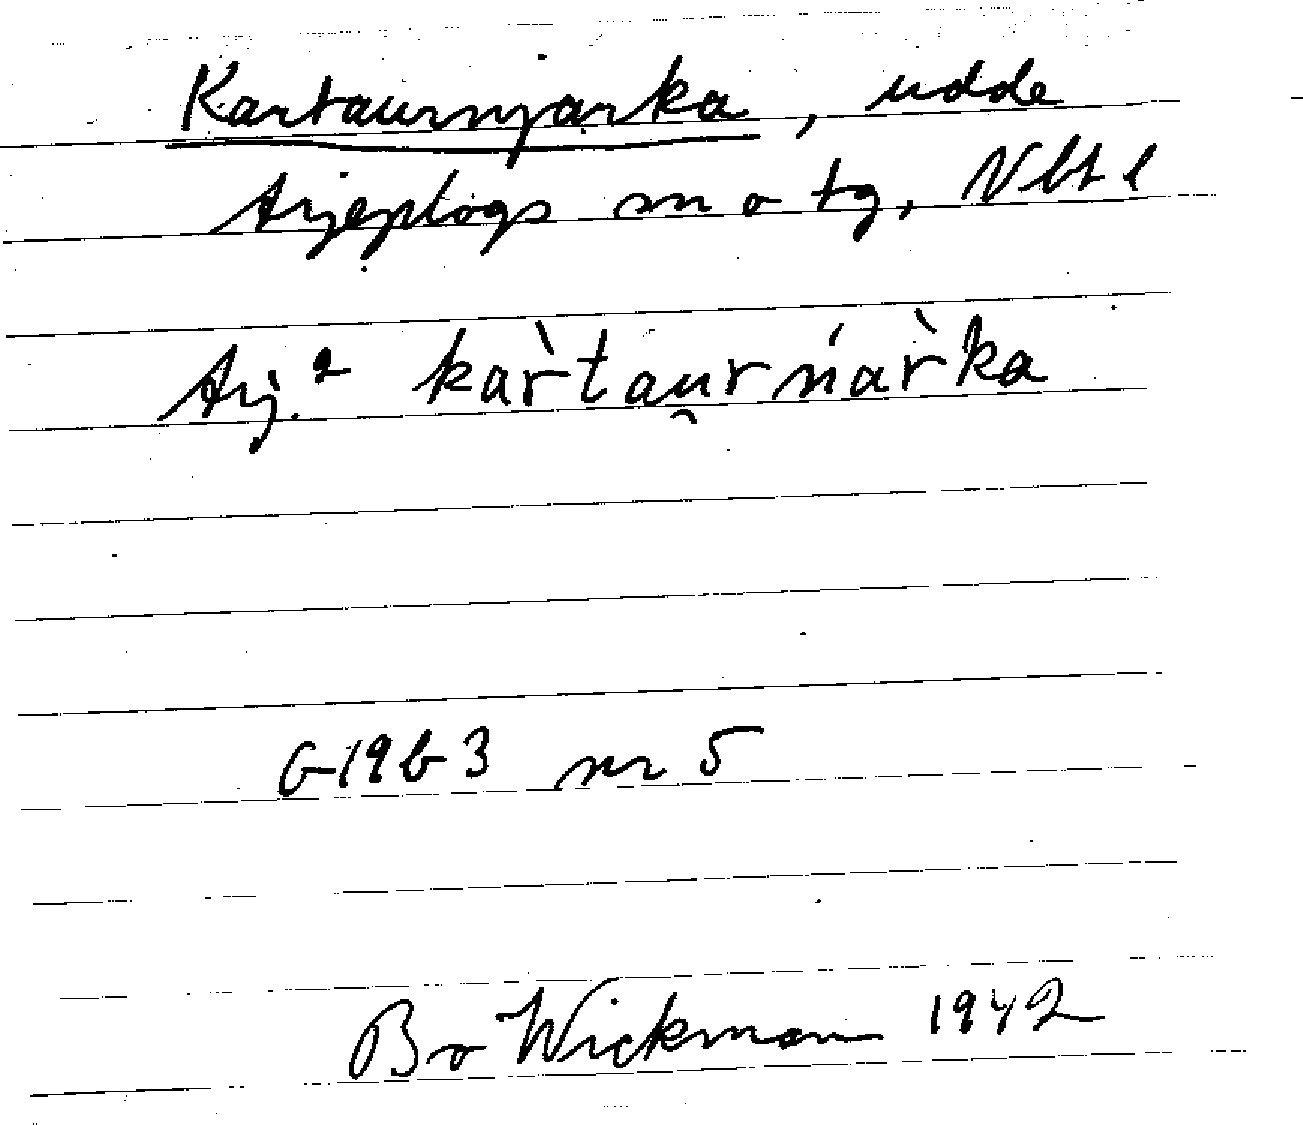 Kartaurnjarka, udde
Arjeplogs sn o tg, Vbt l
Arj.² kar̀tau̯rńar̀ka
G 19 b 3 nr 5
Bo Wickman 1942